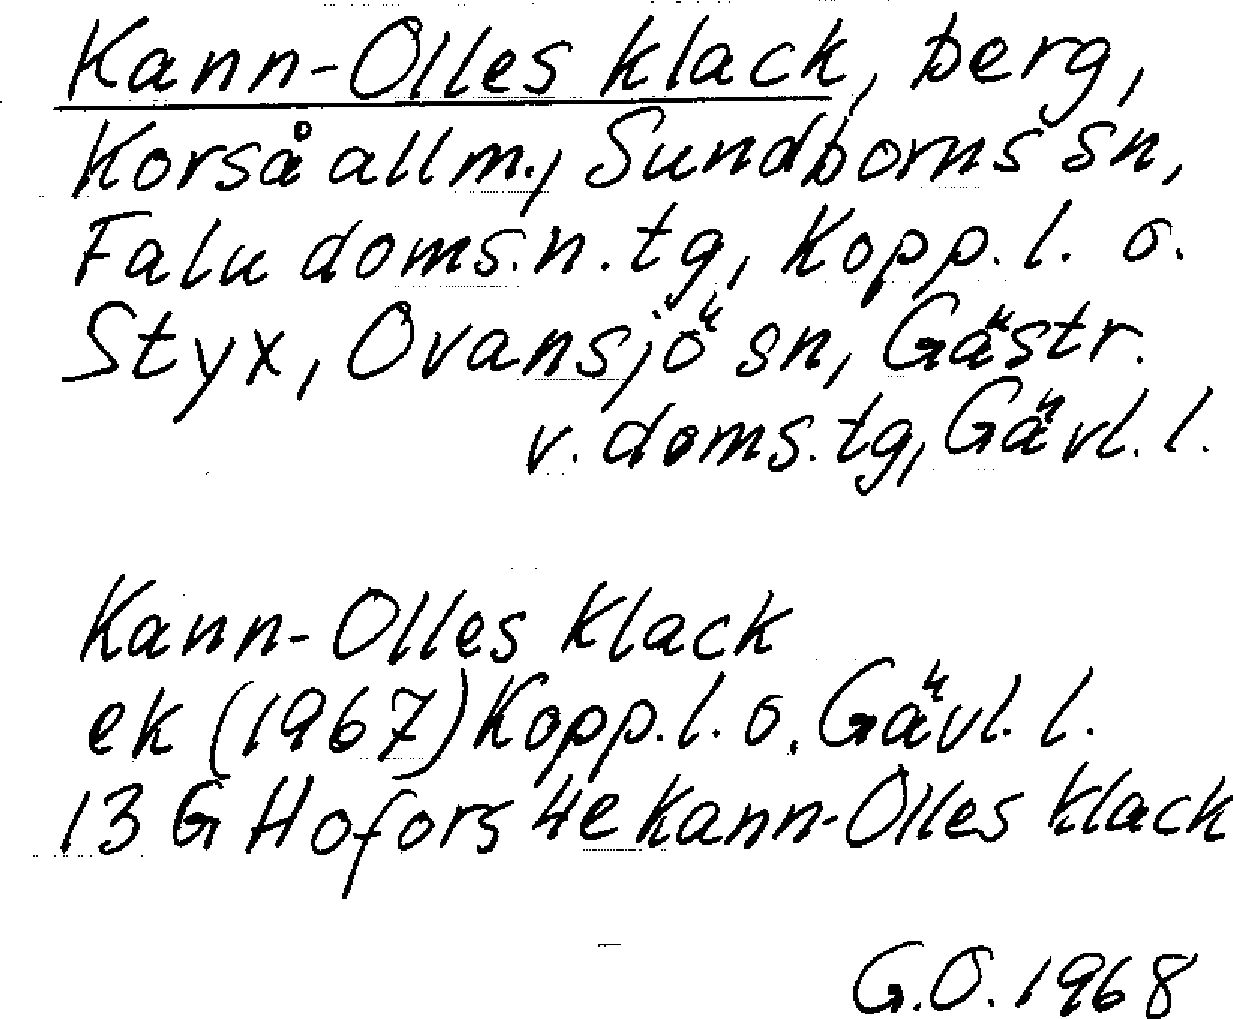 Kann-Olles klack, berg,
Korså allm., Sundborns sn,
Falu doms.n.tg, Kopp.l. o.
Styx, Ovansjö sn, Gästr.
v. doms.tg, Gävl.l.
Kann-Olles klack
ek (1967) Kopp.l. o. Gävl.l.
13 G Hofors 4e Kann-Olles klack
G.O. 1968